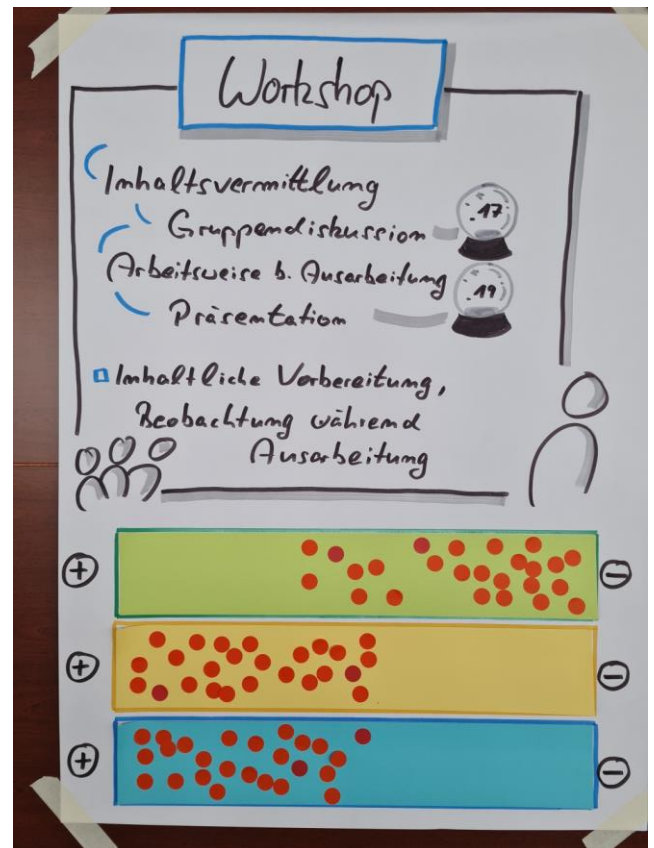 Workshop
Inhaltsvermittlung
Gruppendiskussion
17
Arbeitsweise b. Ausarbeitung
19
Präsentation
Inhaltliche Vorbereitung,
Beobachtung während
Ausarbeitung
+ −
+ −
+ −